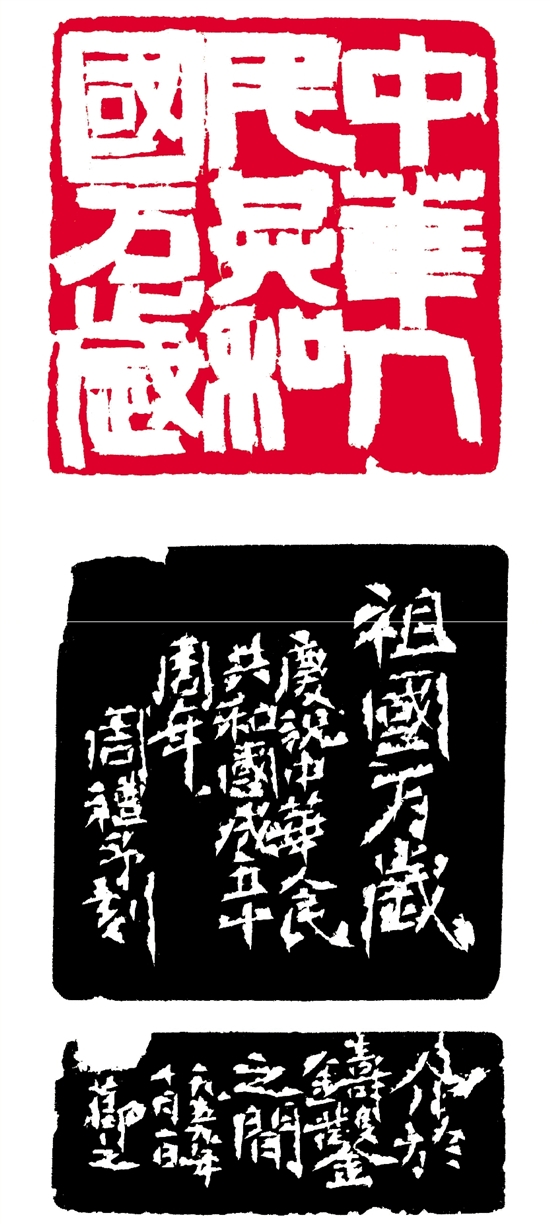 中華人
民共和
國万歲
祖國万歲
慶祝中華人民
共和國成立五十
周年
周禮予刻
介於
鑄鑿
之間
一九九九年
十月一日